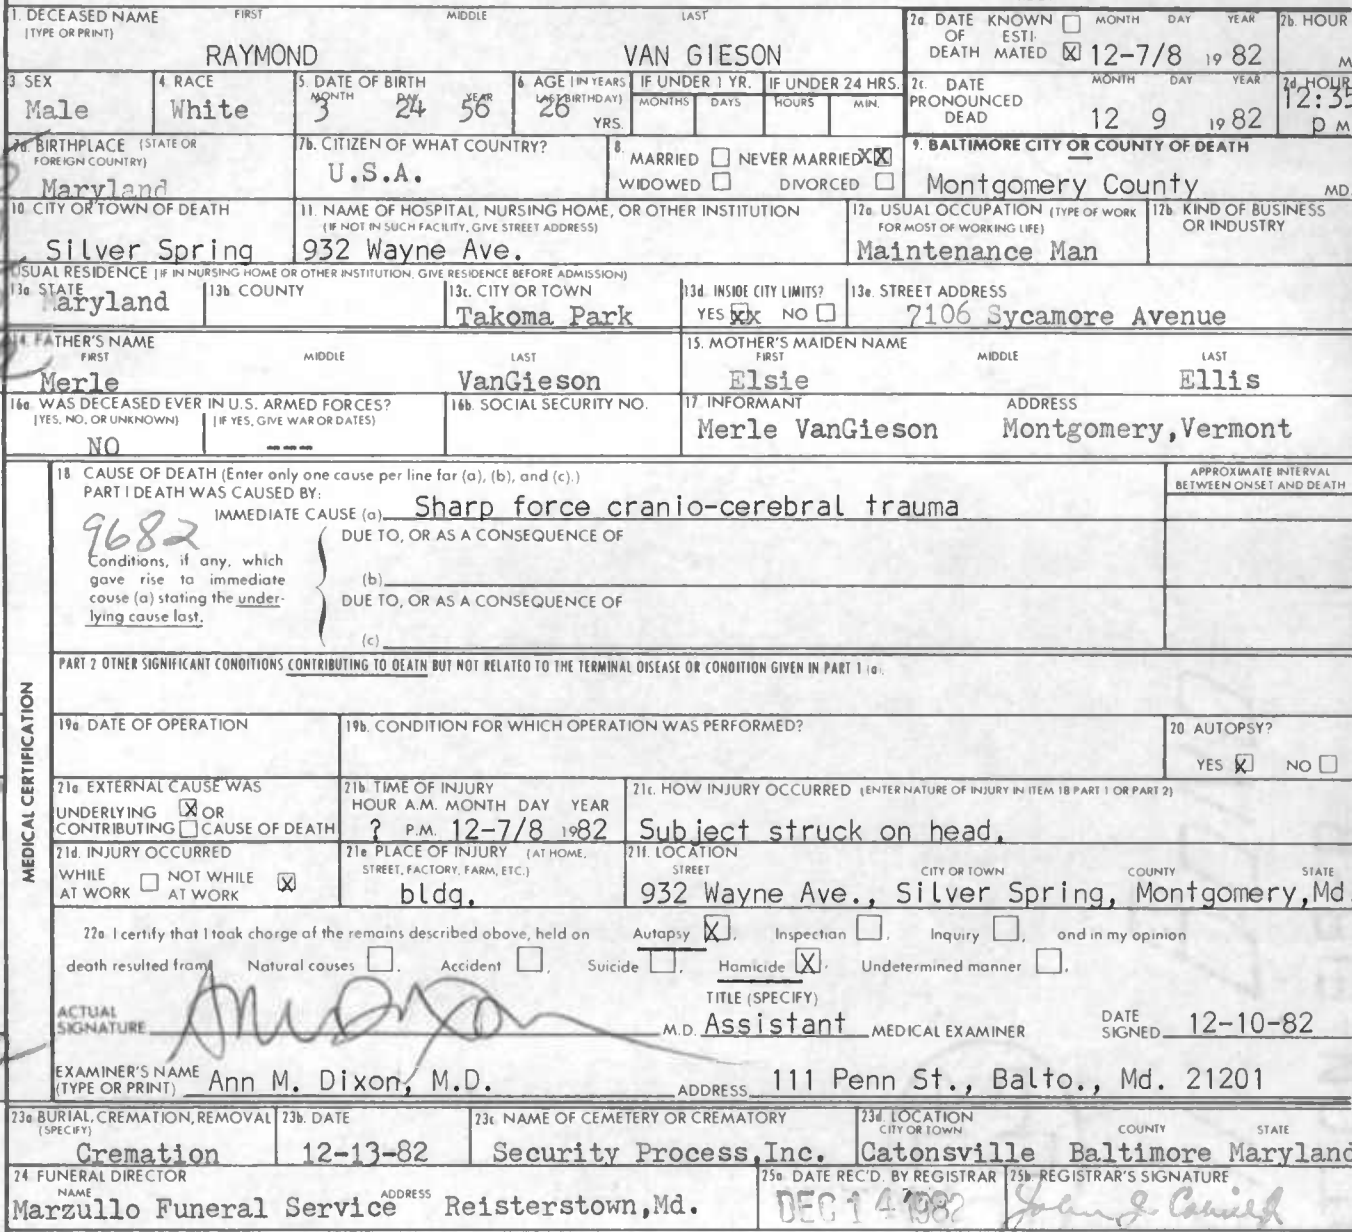 1. DECEASED NAME FIRST MIDDLE LAST
(TYPE OR PRINT)
RAYMOND VAN GIESON
2a. DATE KNOWN ☐ MONTH DAY YEAR
OF ESTI-
DEATH MATED ☒ 12-7/8 19 82
2b. HOUR
M
3 SEX
Male
4. RACE
White
5. DATE OF BIRTH
MONTH DAY YEAR
3 24 56
6. AGE (IN YEARS
LAST BIRTHDAY)
26 YRS.
IF UNDER 1 YR. IF UNDER 24 HRS.
MONTHS DAYS HOURS MIN.
2c. DATE MONTH DAY YEAR
PRONOUNCED
DEAD 12 9 19 82
2d HOUR
12:35
p M
7a. BIRTHPLACE (STATE OR
FOREIGN COUNTRY)
Maryland
7b. CITIZEN OF WHAT COUNTRY?
U.S.A.
8.
MARRIED ☐ NEVER MARRIED XX
WIDOWED ☐ DIVORCED ☐
9. BALTIMORE CITY OR COUNTY OF DEATH
Montgomery County MD.
10. CITY OR TOWN OF DEATH
Silver Spring
11. NAME OF HOSPITAL, NURSING HOME, OR OTHER INSTITUTION
(IF NOT IN SUCH FACILITY, GIVE STREET ADDRESS)
932 Wayne Ave.
12a. USUAL OCCUPATION (TYPE OF WORK
FOR MOST OF WORKING LIFE)
Maintenance Man
12b. KIND OF BUSINESS
OR INDUSTRY
USUAL RESIDENCE (IF IN NURSING HOME OR OTHER INSTITUTION, GIVE RESIDENCE BEFORE ADMISSION)
13a. STATE
Maryland
13b. COUNTY
13c. CITY OR TOWN
Takoma Park
13d. INSIDE CITY LIMITS?
YES xx NO ☐
13e. STREET ADDRESS
7106 Sycamore Avenue
14. FATHER'S NAME
FIRST MIDDLE LAST
Merle VanGieson
15. MOTHER'S MAIDEN NAME
FIRST MIDDLE LAST
Elsie Ellis
16a. WAS DECEASED EVER IN U.S. ARMED FORCES?
(YES, NO, OR UNKNOWN) (IF YES, GIVE WAR OR DATES)
NO ---
16b. SOCIAL SECURITY NO.
17. INFORMANT ADDRESS
Merle VanGieson Montgomery,Vermont
MEDICAL CERTIFICATION
18. CAUSE OF DEATH (Enter only one cause per line for (a), (b), and (c).)
PART I DEATH WAS CAUSED BY:
IMMEDIATE CAUSE (a) Sharp force cranio-cerebral trauma
APPROXIMATE INTERVAL
BETWEEN ONSET AND DEATH
9682
DUE TO, OR AS A CONSEQUENCE OF
Conditions, if any, which
gave rise to immediate
cause (a) stating the under-
lying cause last.
(b)
DUE TO, OR AS A CONSEQUENCE OF
(c)
PART 2 OTHER SIGNIFICANT CONDITIONS CONTRIBUTING TO DEATH BUT NOT RELATED TO THE TERMINAL DISEASE OR CONDITION GIVEN IN PART 1 (a).
19a. DATE OF OPERATION
19b. CONDITION FOR WHICH OPERATION WAS PERFORMED?
20. AUTOPSY?
YES ☒ NO ☐
21a. EXTERNAL CAUSE WAS
UNDERLYING ☒ OR
CONTRIBUTING ☐ CAUSE OF DEATH
21b. TIME OF INJURY
HOUR A.M. MONTH DAY YEAR
? P.M. 12-7/8 1982
21c. HOW INJURY OCCURRED (ENTER NATURE OF INJURY IN ITEM 18 PART 1 OR PART 2)
Subject struck on head.
21d. INJURY OCCURRED
WHILE ☐ NOT WHILE ☒
AT WORK AT WORK
21e. PLACE OF INJURY (AT HOME,
STREET, FACTORY, FARM, ETC.)
bldg.
21f. LOCATION
STREET CITY OR TOWN COUNTY STATE
932 Wayne Ave., Silver Spring, Montgomery,Md.
22a. I certify that I took charge of the remains described above, held on Autopsy ☒, Inspection ☐, Inquiry ☐, and in my opinion
death resulted from Natural causes ☐, Accident ☐, Suicide ☐, Homicide ☒, Undetermined manner ☐.
ACTUAL
SIGNATURE Ann M. Dixon M.D.
TITLE (SPECIFY)
Assistant MEDICAL EXAMINER
DATE
SIGNED 12-10-82
EXAMINER'S NAME
(TYPE OR PRINT) Ann M. Dixon, M.D. ADDRESS 111 Penn St., Balto., Md. 21201
23a. BURIAL, CREMATION, REMOVAL
(SPECIFY)
Cremation
23b. DATE
12-13-82
23c. NAME OF CEMETERY OR CREMATORY
Security Process,Inc.
23d. LOCATION
CITY OR TOWN COUNTY STATE
Catonsville Baltimore Maryland
24. FUNERAL DIRECTOR
NAME ADDRESS
Marzullo Funeral Service Reisterstown,Md.
25a. DATE REC'D. BY REGISTRAR
DEC 14 1982
25b. REGISTRAR'S SIGNATURE
John J.